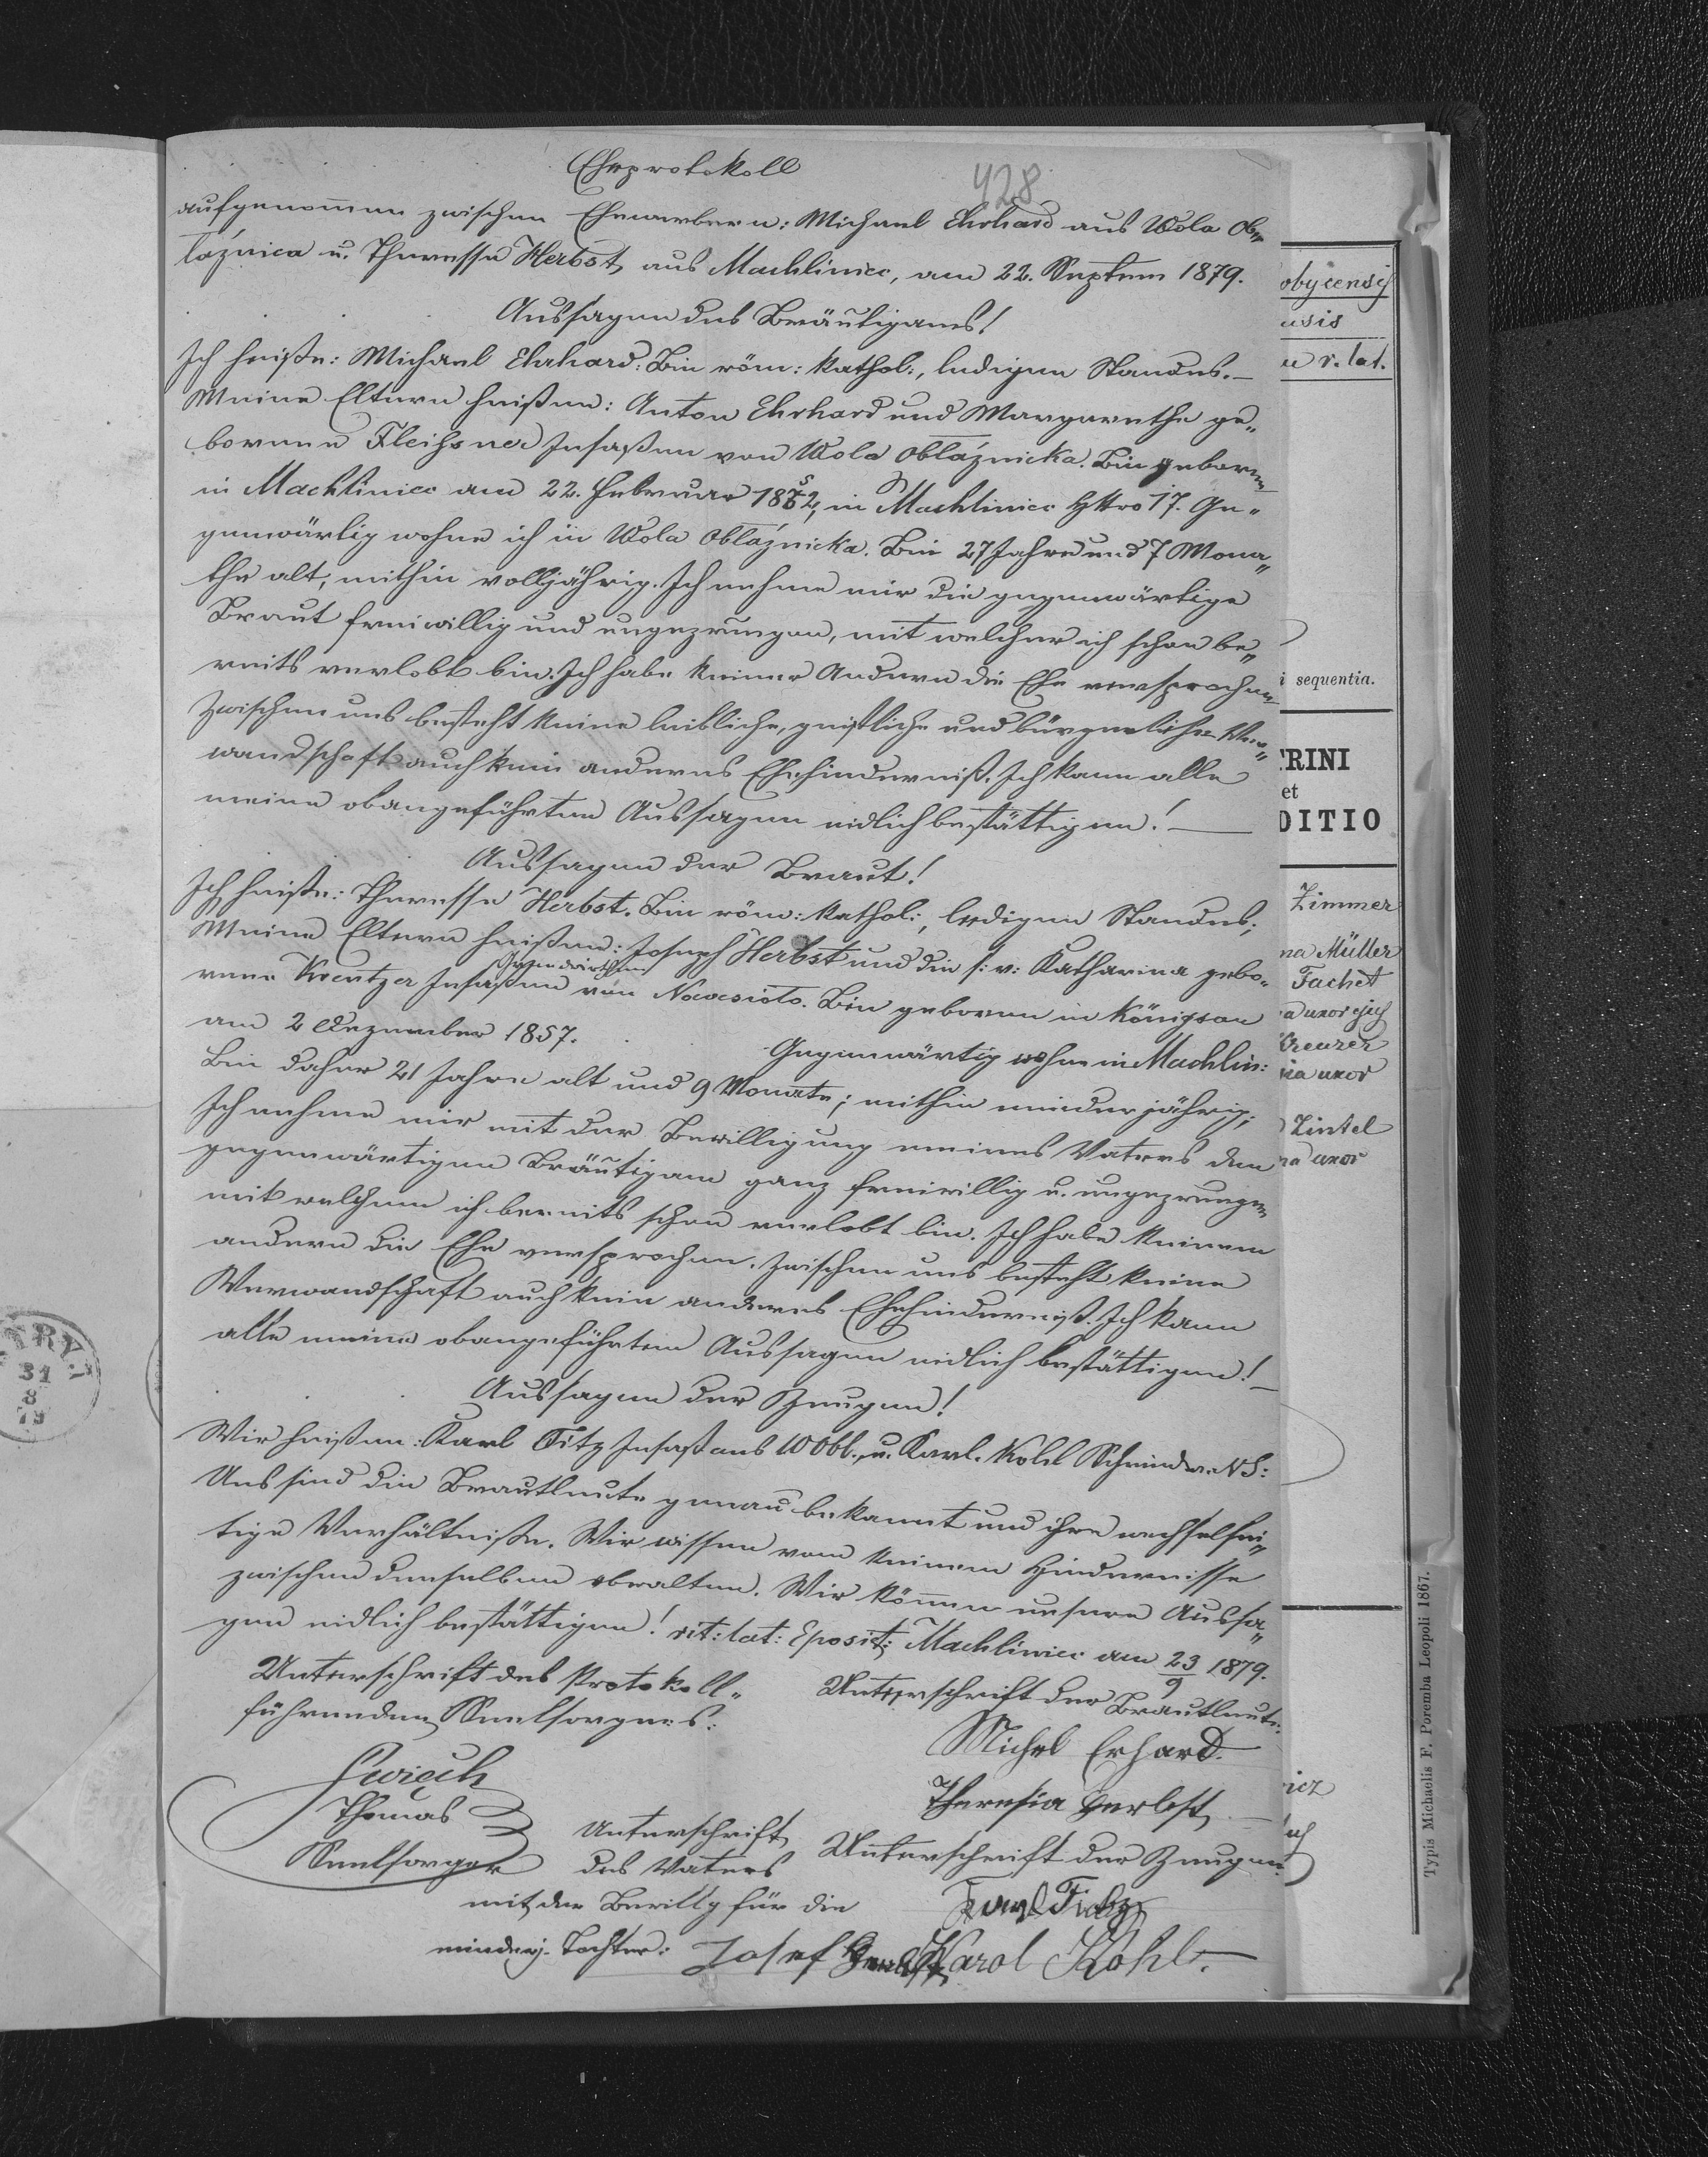 Eheprotokoll
428
aufgenommen zwischen Ehewerbern: Michael Ehrhard aus Wola Ob„
łaźnica u. Theresse Herbst, aus Machliniec, am 22. Septem 1879.
Aussagen des Bräutigams!
Ich heiße: Michael Ehrhard: Bin röm: kathol:, ledigen Standes. –
Meine Eltern heißen: Anton Ehrhard und Margarethe ge„
borene Fleihsner Insaßen von Wola Obłáznicka. Bin geboren
in Machliniec am 22. Februar 1852, in Machliniec HNro 17. Ge„
genwärtig wohne ich in Wola Obłáznicka. Bin 27 Jahre und 7 Mona„
the alt, mithin volljährig. Ich nehme mir die gegenwärtige
Braut freiwillig und ungezwungen, mit welcher ich schon be„
reits verlobt bin. Ich habe keiner Andern die Ehe versprochen
Zwischen uns besteht keine leibliche, geistliche und bürgerliche Ver„
wandschaft auch kein anderes Ehehinderniß. Ich kann alle
meine obangeführten Aussagen eidlich bestättigen! –
Aussagen der Braut!
Ich heiße: Theresse Herbst. Bin röm: kathol:, ledigen Standes;
Meine Eltern heißen: Joseph Herbst und die s: v: Katharina gebo„
rene Kreutzer Insaßen von Nowesioło. Bin geboren in Königsau
am 2 Dezember 1857. Gegenwärtig wohne in Machlin:
Bin daher 21 Jahre alt und 9 Monate; mithin minderjährig;
Ich nehme mir mit der Bewilligung meines Vaters den
gegenwärtigen Bräutigam ganz freiwillig u. ungezwungen
mit welchem ich bereits schon verlobt bin. Ich habe keinem
andern die Ehe versprochen. Zwischen uns besteht keine
Verwandschaft auch kein anderes Ehehinderniß. Ich kann
alle meine obangeführten Aussagen eidlich bestättigen! –
Aussagen der Zeugen!
Wir heißen: Karl Fitz Insaß aus W Obł., u. Karl Kohl Schneider NS:
Uns sind die Brautleute genau bekannt und ihre wechselsei„
tige Verhältniße. Wir wissen von keinem Hindernisse
zwischen denselben obwalten. Wir können unsere Aussa„
gen eidlich bestättigen! rit: lat: Eposit: Machliniec am 23/9 1879.
Unterschrift des Protokoll„
führenden Seelsorgers:
Unterschrift der Brautleute:
Michel Erhard.
Theresia Herbst
Świąch
Thomas
Seelsorger
Unterschrift
des Vaters
mit der Bewillg für die
minderj. Tochter: Josef Herbst
Unterschrift der Zeugen:
Karl Fitz
Karol Kohl.
obycensis
ensis
r. lat.
i sequentia.
TRINI
et
DITIO
Zimmer
na Müller
Fachet
a uxor ejus
Creuzer
na uxor
Zintel
na uxor
icz
Typis Michaelis F. Poremba Leopoli 1867.
STRYJ
31
8
79